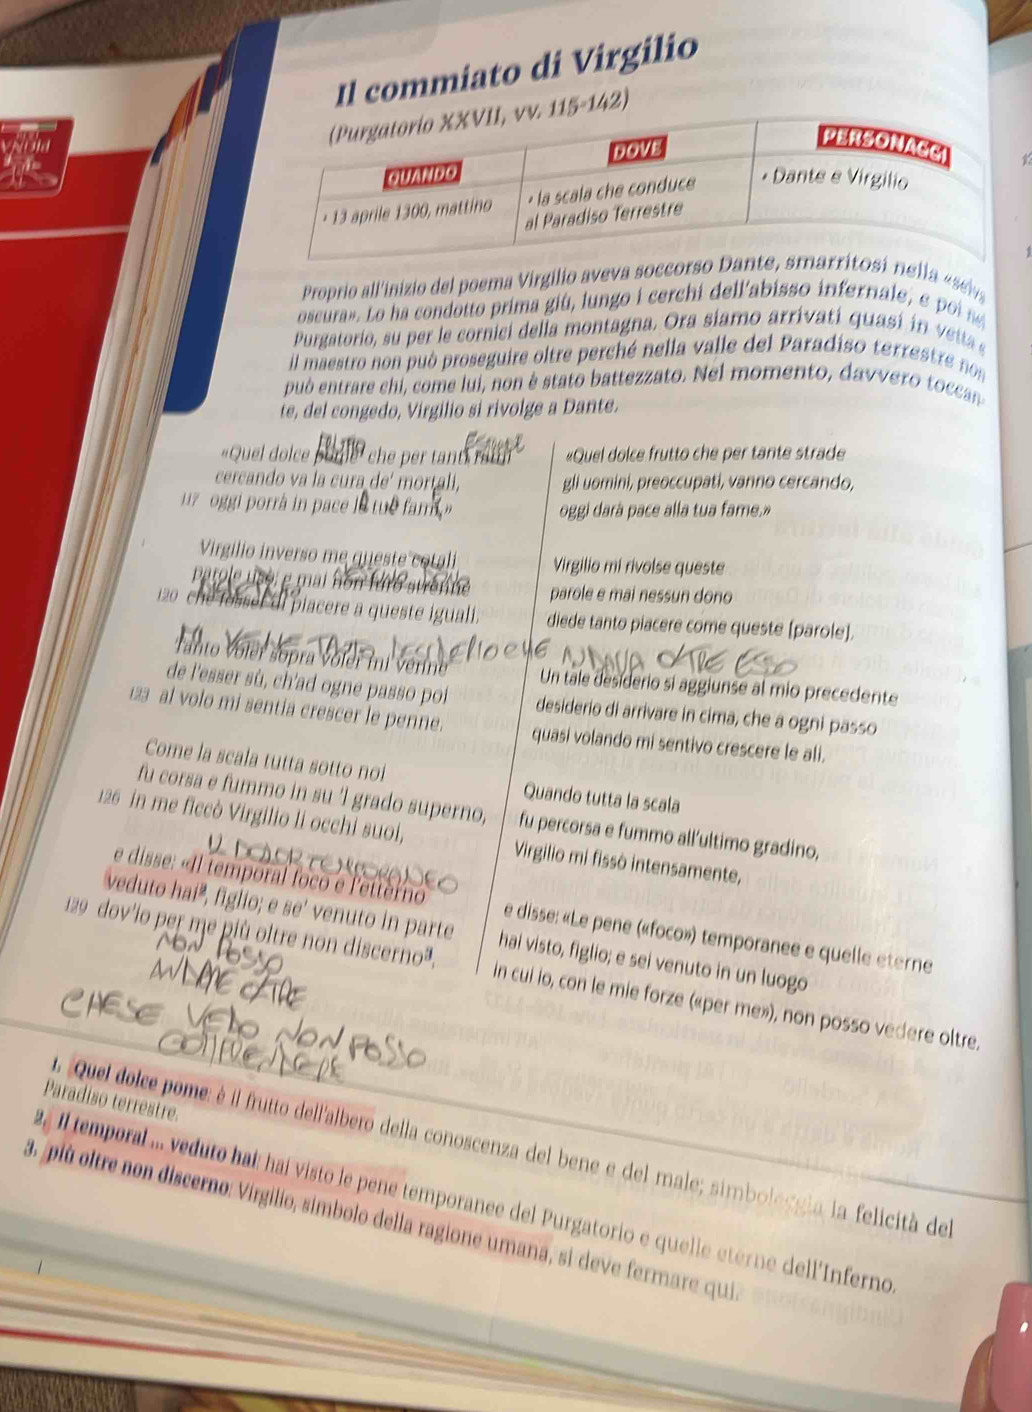 Il commiato di Virgilio
(Purgatorio XXVII, vv. 115-142)
QUANDO
DOVE
PERSONAGGI
• 13 aprile 1300, mattino
• la scala che conduce
al Paradiso Terrestre
• Dante e Virgilio
Proprio all'inizio del poema Virgilio aveva soccorso Dante, smarritosi nella «selva
oscura». Lo ha condotto prima giù, lungo i cerchi dell'abisso infernale, e poi nel
Purgatorio, su per le cornici della montagna. Ora siamo arrivati quasi in vetta e
il maestro non può proseguire oltre perché nella valle del Paradiso terrestre non
può entrare chi, come lui, non è stato battezzato. Nel momento, davvero toccan-
te, del congedo, Virgilio si rivolge a Dante.
«Quel dolce che per tanti rami
cercando va la cura de' mortali,
117 oggi porrà in pace le tue fami.»
Virgilio inverso me queste cotali
parole usò; e mai non furo strenne
120 che fosser di piacere a queste iguali.
Tanto voler sopra voler mi venne
de l'esser sù, ch'ad ogne passo poi
123 al volo mi sentia crescer le penne.
Come la scala tutta sotto noi
fu corsa e fummo in su 'l grado superno,
126 in me ficcò Virgilio li occhi suoi,
e disse: «Il temporal foco e l'etterno
veduto hai², figlio; e se' venuto in parte
129 dov'io per me più oltre non discerno³.
NON POSSO
CHE SE
NON POSSO
«Quel dolce frutto che per tante strade
gli uomini, preoccupati, vanno cercando,
oggi darà pace alla tua fame.»
Virgilio mi rivolse queste
parole e mai nessun dono
diede tanto piacere come queste [parole].
Un tale desiderio si aggiunse al mio precedente
desiderio di arrivare in cima, che a ogni passo
quasi volando mi sentivo crescere le ali.
Quando tutta la scala
fu percorsa e fummo all'ultimo gradino,
Virgilio mi fissò intensamente,
e disse: «Le pene («foco») temporanee e quelle eterne
hai visto, figlio; e sei venuto in un luogo
in cui io, con le mie forze («per me»), non posso vedere oltre.
1. Quel dolce pome: è il frutto dell'albero della conoscenza del bene e del male; simboleggia la felicità del
Paradiso terrestre.
2. Il temporal ... veduto hai: hai visto le pene temporanee del Purgatorio e quelle eterne dell'Inferno.
3. più oltre non discerno: Virgilio, simbolo della ragione umana, si deve fermare qui.